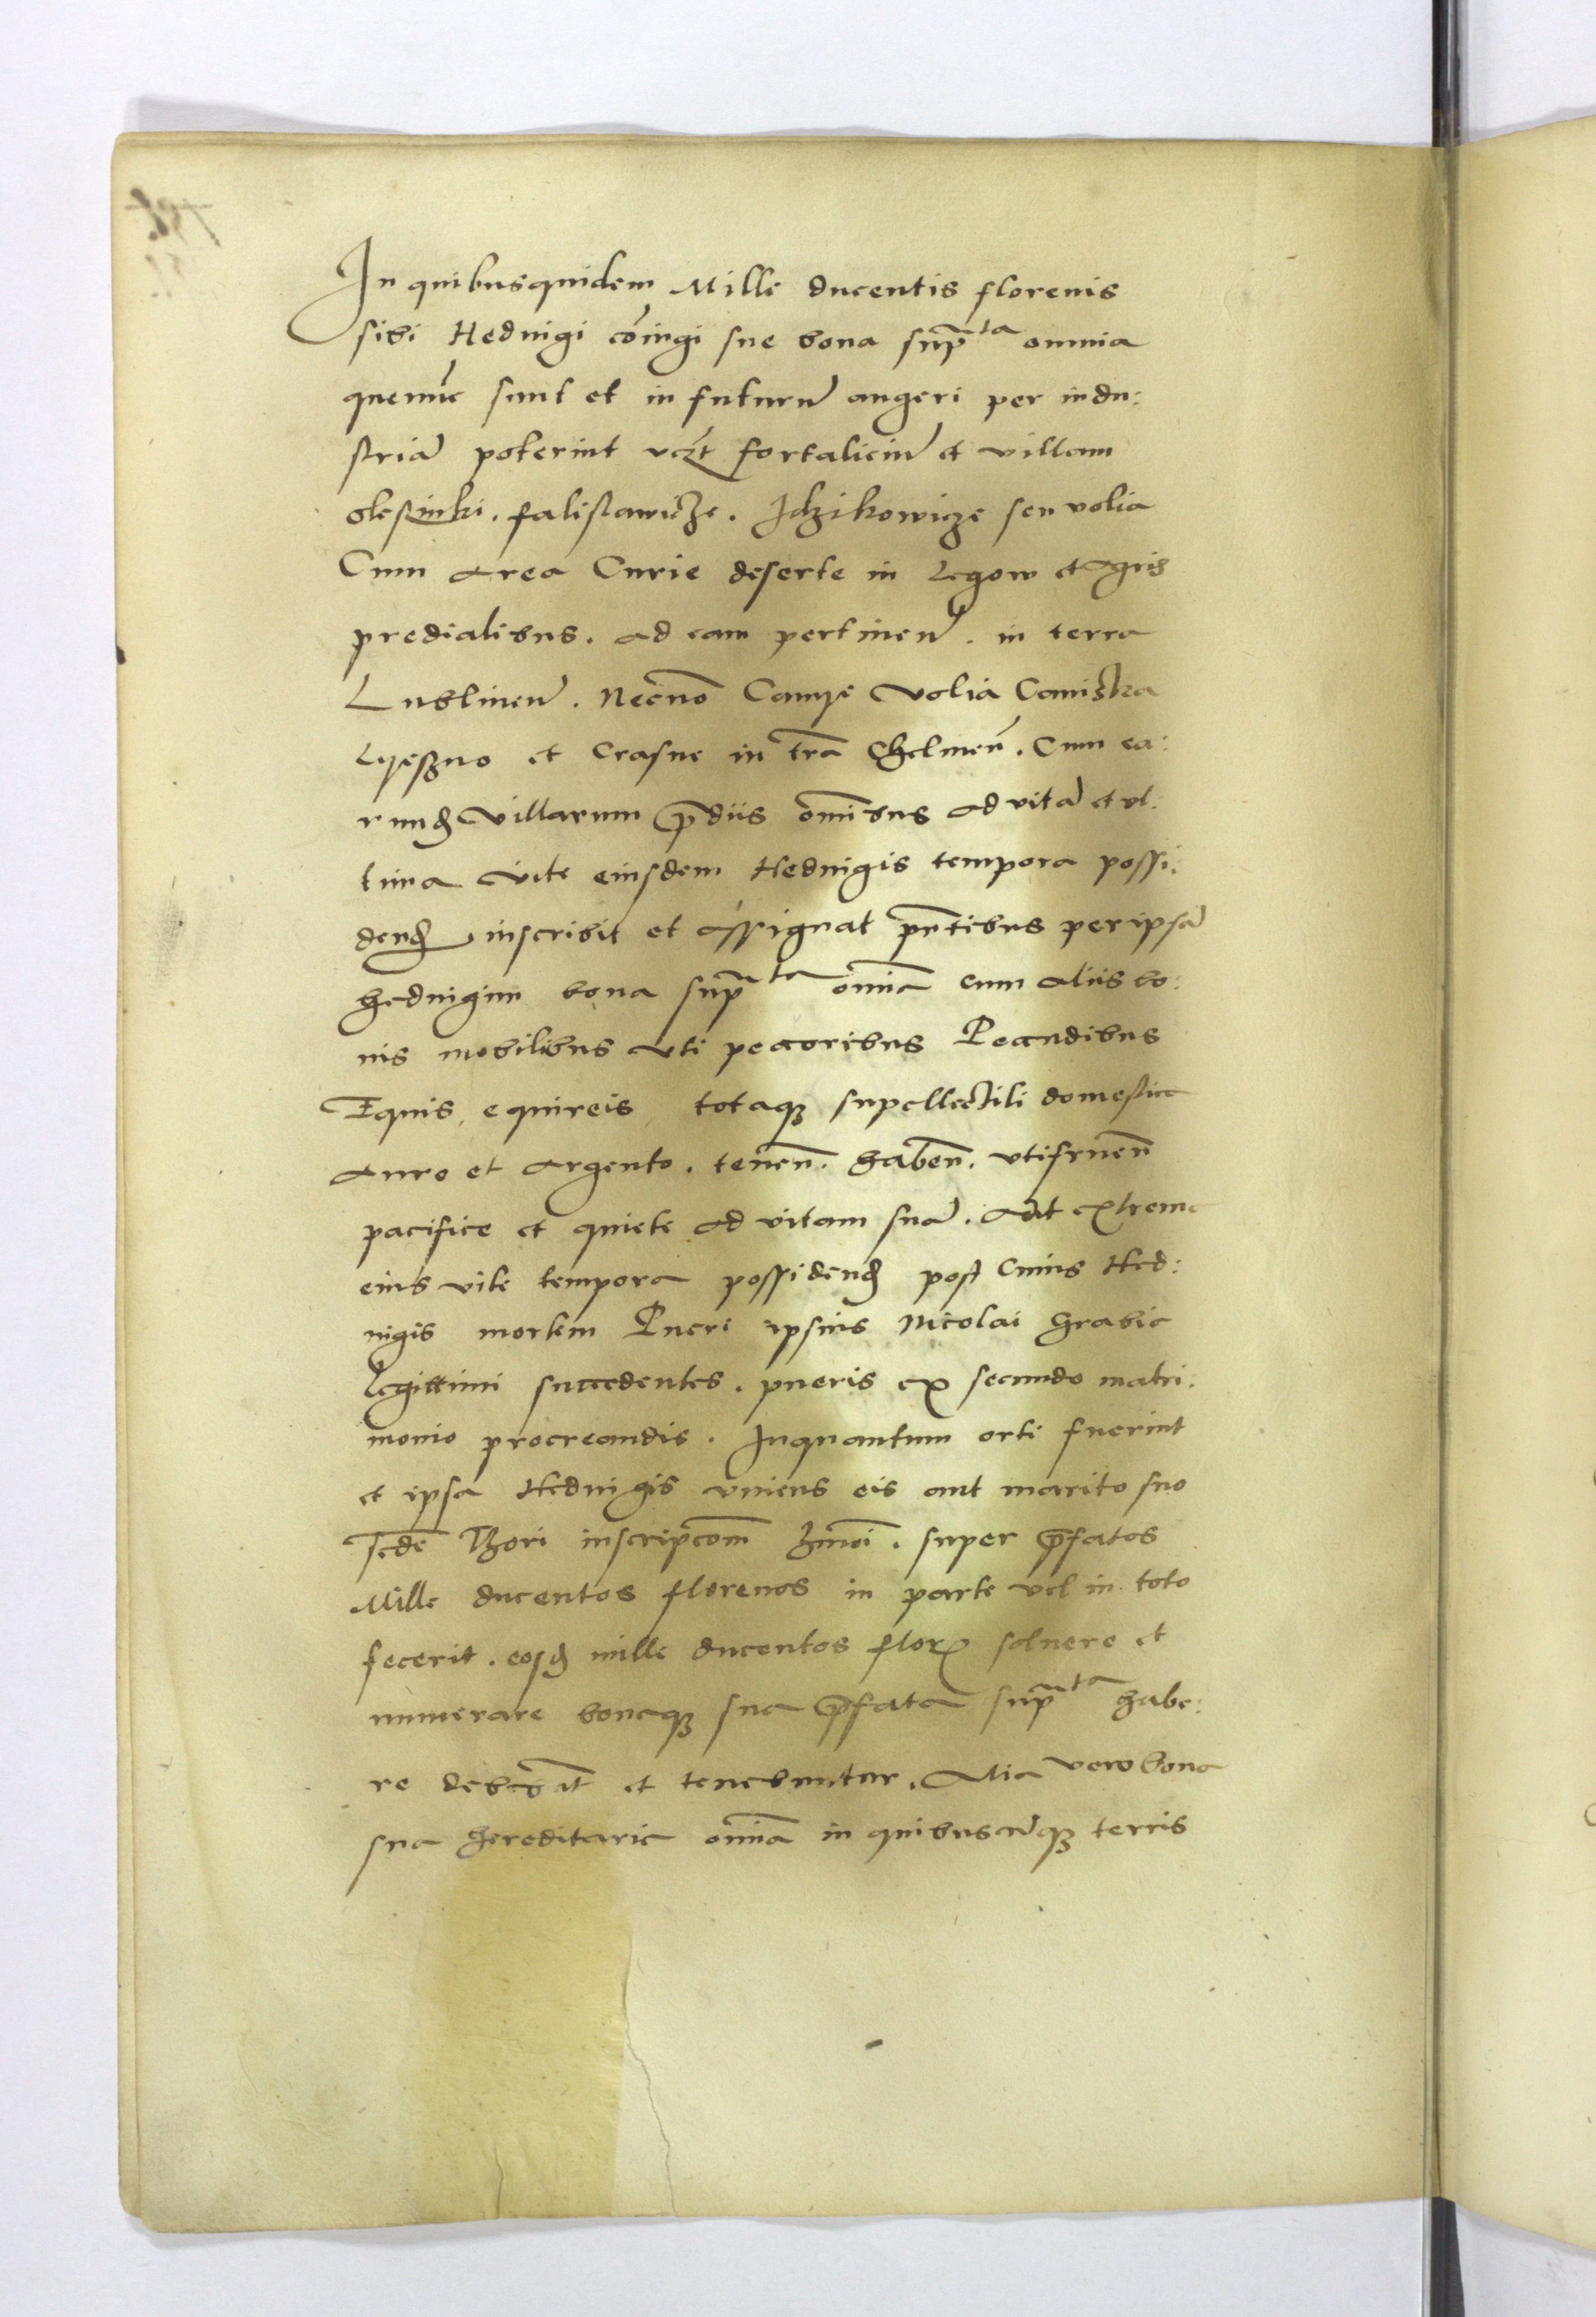 In quibusquidem Mille ducentis florenis
sibi Heduigi cōiugi sue bona supra^ta omnia
quenūc sunt et in futurū augeri per indu:
striā poterint vczt fortaliciū et villam
olesninki. falislawicze. Idzikowicze seu volia
Cum area Curie deserte in Legow et Agris
predialibus. ad eam pertineñ. in terra
Lublineñ. Necnō Camye volia Camiska
Lyeszno et Crasne in trā Chelmeñ. Cum ea:
rundē villarum p̄diis om̄ibus ad vitā et vl:
tima vite eiusdem Heduigis tempora possi:
dendā inscribit et assignat pn̄tibus per ipsā
heduigim bona supra^ta om̄ia cum aliis bo:
nis mobilibus vti pecoribus Pecudibus
Equis, equireis, totaqȝ supellectili domestica
auro et argento. teneñ. habeñ. vtifrueñ
pacifice et quiete ad vitam suā. aut extrema
eius vite tempora possidendā post cuius Hed:
uigis mortem Pueri ipsius Nicolai hrabie
legittimi succedentes. pueris ex secundo matri:
monio procreandis. Inquantum orti fuerint
et ipsa Heduigis viuens eis aut marito suo
scdē Thori inscripcōm hmōi. super p̄fatos
Mille ducentos florenos in parte vel in toto
fecerit. eosdē mille ducentos flor̄ soluere et
numerare bonaqȝ sua p̄fata supra^ta habe:
re debebūt et tenebuntur. Alia vero bona
sua hereditaria om̄ia in quibuscūqȝ terris